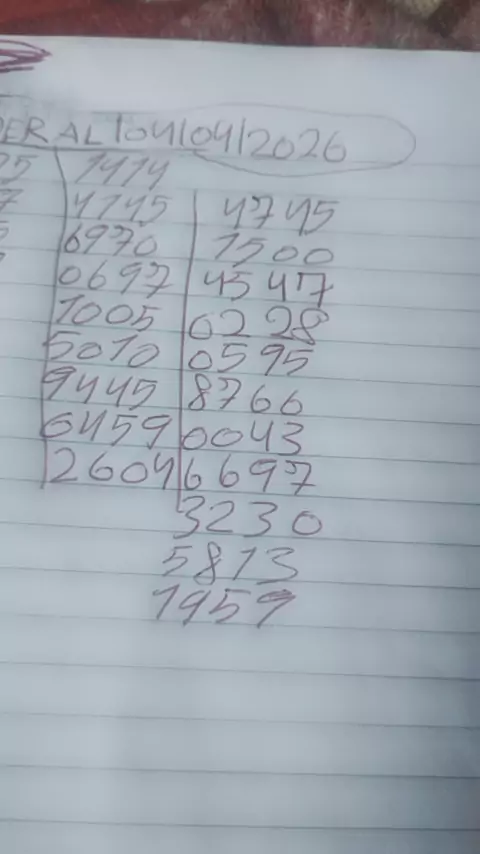 ERAL|04|04|2026
25 | 1414
7 | 4145 | 4745
5 | 6970 | 1500
0697 | 4547
1005 | 0228
5010 | 0595
9445 | 8766
0459 | 0043
2604 | 6697
3230
5813
1959